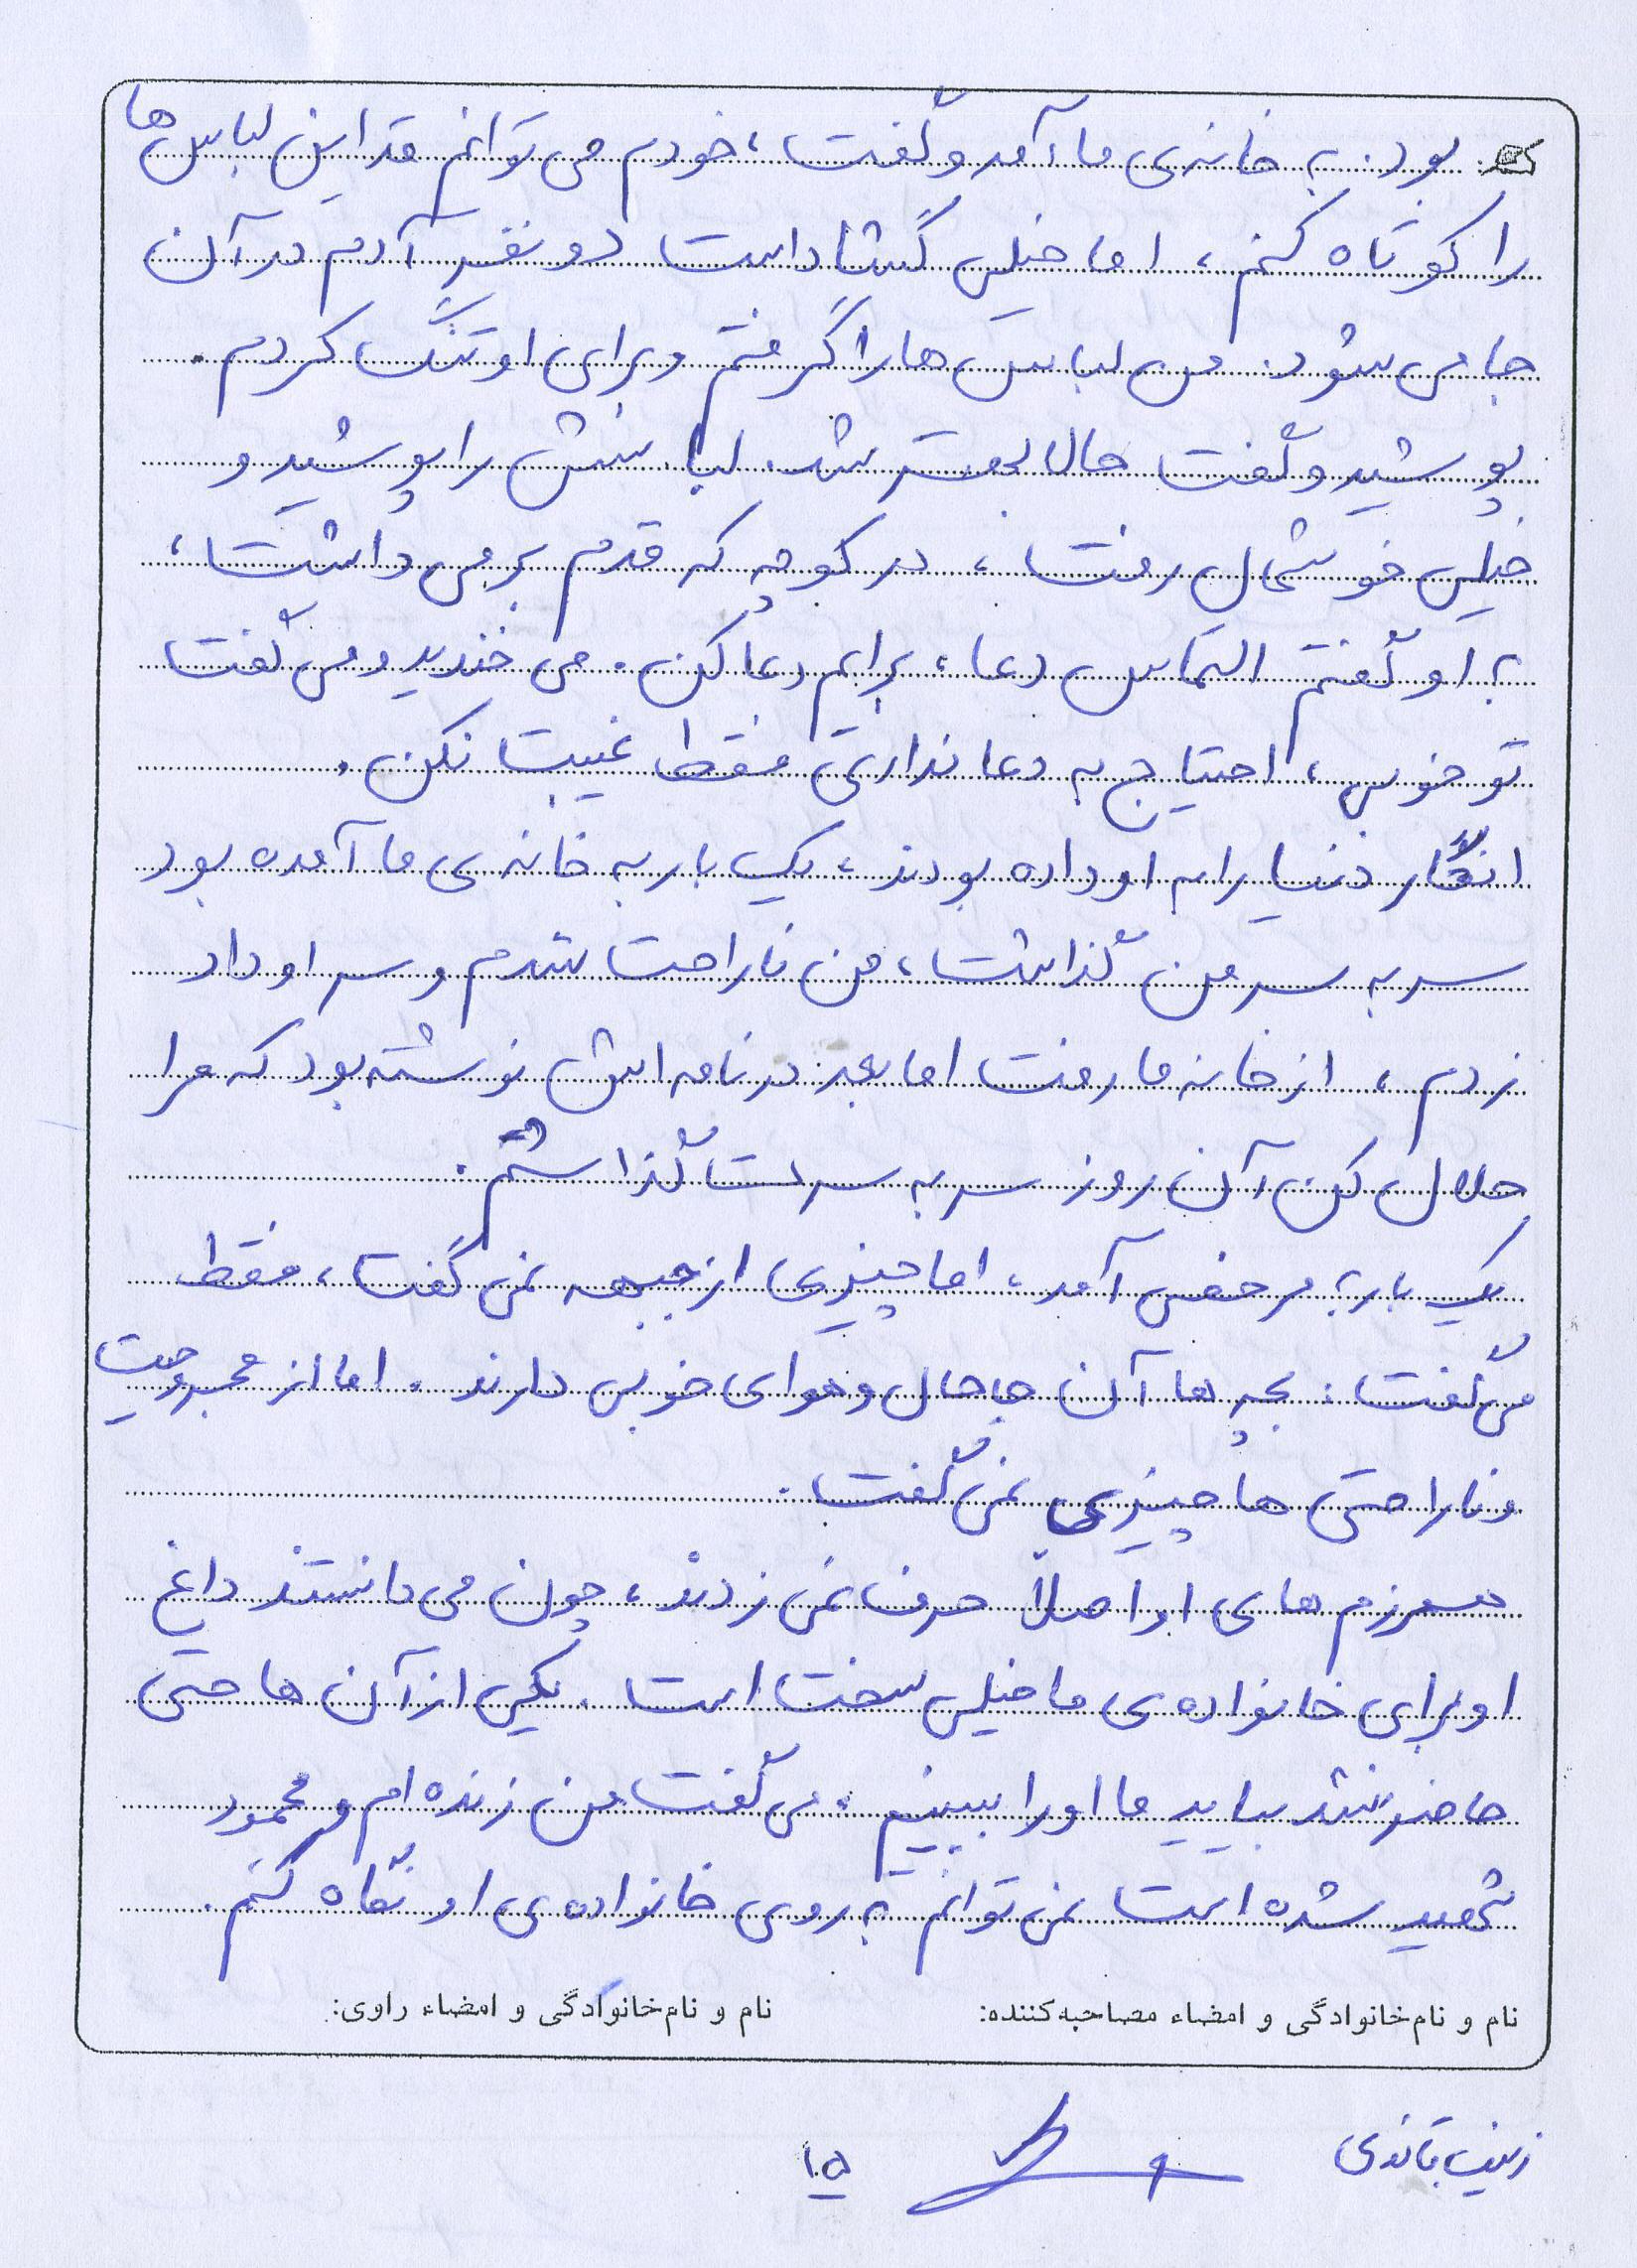 بود. به خانه‌ی ما آمد و گفت، خودم می توانم قد این لباس ها
را کوتاه کنم، اما خیلی گشاد است دو نفر آدم در آن
جا می شود. من لباس ها را گرفتم و برای او تنگ کردم.
پوشید و گفت حالا بهتر شد. لباسش را پوشید و
خیلی خوشحال رفت، در کوچه که قدم بر می داشت،
به او گفتم التماس دعا، برایم دعا کن. می خندید و می گفت
تو خوبی، احتیاج به دعا نداری فقط غیبت نکن.
انگار دنیا را به او داده بودند، یک بار به خانه‌ی ما آمده بود
سر به سر من گذاشت، من ناراحت شدم و سر او داد
زدم، از خانه ما رفت اما بعد در نامه اش نوشته بود که مرا
حلال کن آن روز سر به سرت گذاشتم.
یک بار به مرخصی آمد، اما چیزی از جبهه نمی گفت، فقط
می گفت: بچه ها آن جا حال و هوای خوبی دارند. اما از مجروحیت
و ناراحتی ها چیزی نمی گفت.
همرزم های او اصلاً حرف نمی زدند، چون می دانستند داغ
او برای خانواده‌ی ما خیلی سخت است. یکی از آن ها حتی
حاضر نشد بیاید ما او را ببینیم. می گفت من زنده ام و محمود
شهید شده است نمی توانم به روی خانواده‌ی او نگاه کنم.
نام و نام‌خانوادگی و امضاء مصاحبه‌کننده: نام و نام‌خانوادگی و امضاء راوی:
زینب ۱۵